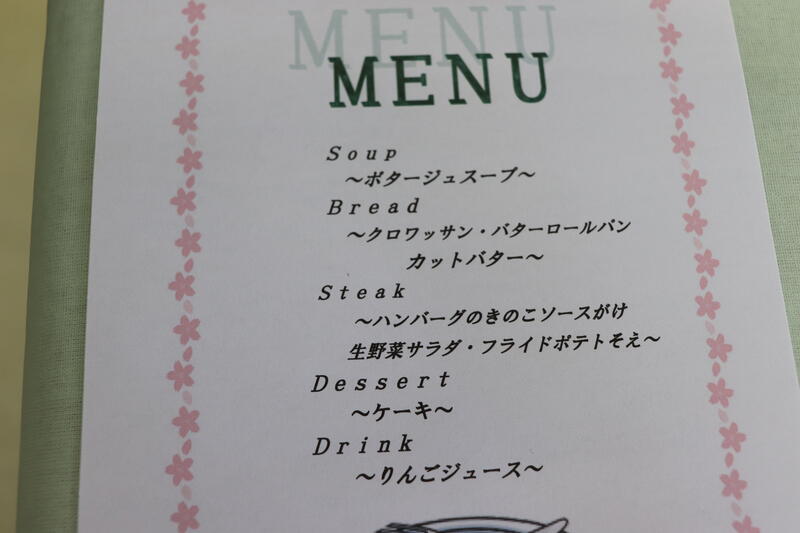 MENU
Soup
～ポタージュスープ～
Bread
～クロワッサン・バターロールパン
カットバター～
Steak
～ハンバーグのきのこソースがけ
生野菜サラダ・フライドポテトそえ～
Dessert
～ケーキ～
Drink
～りんごジュース～